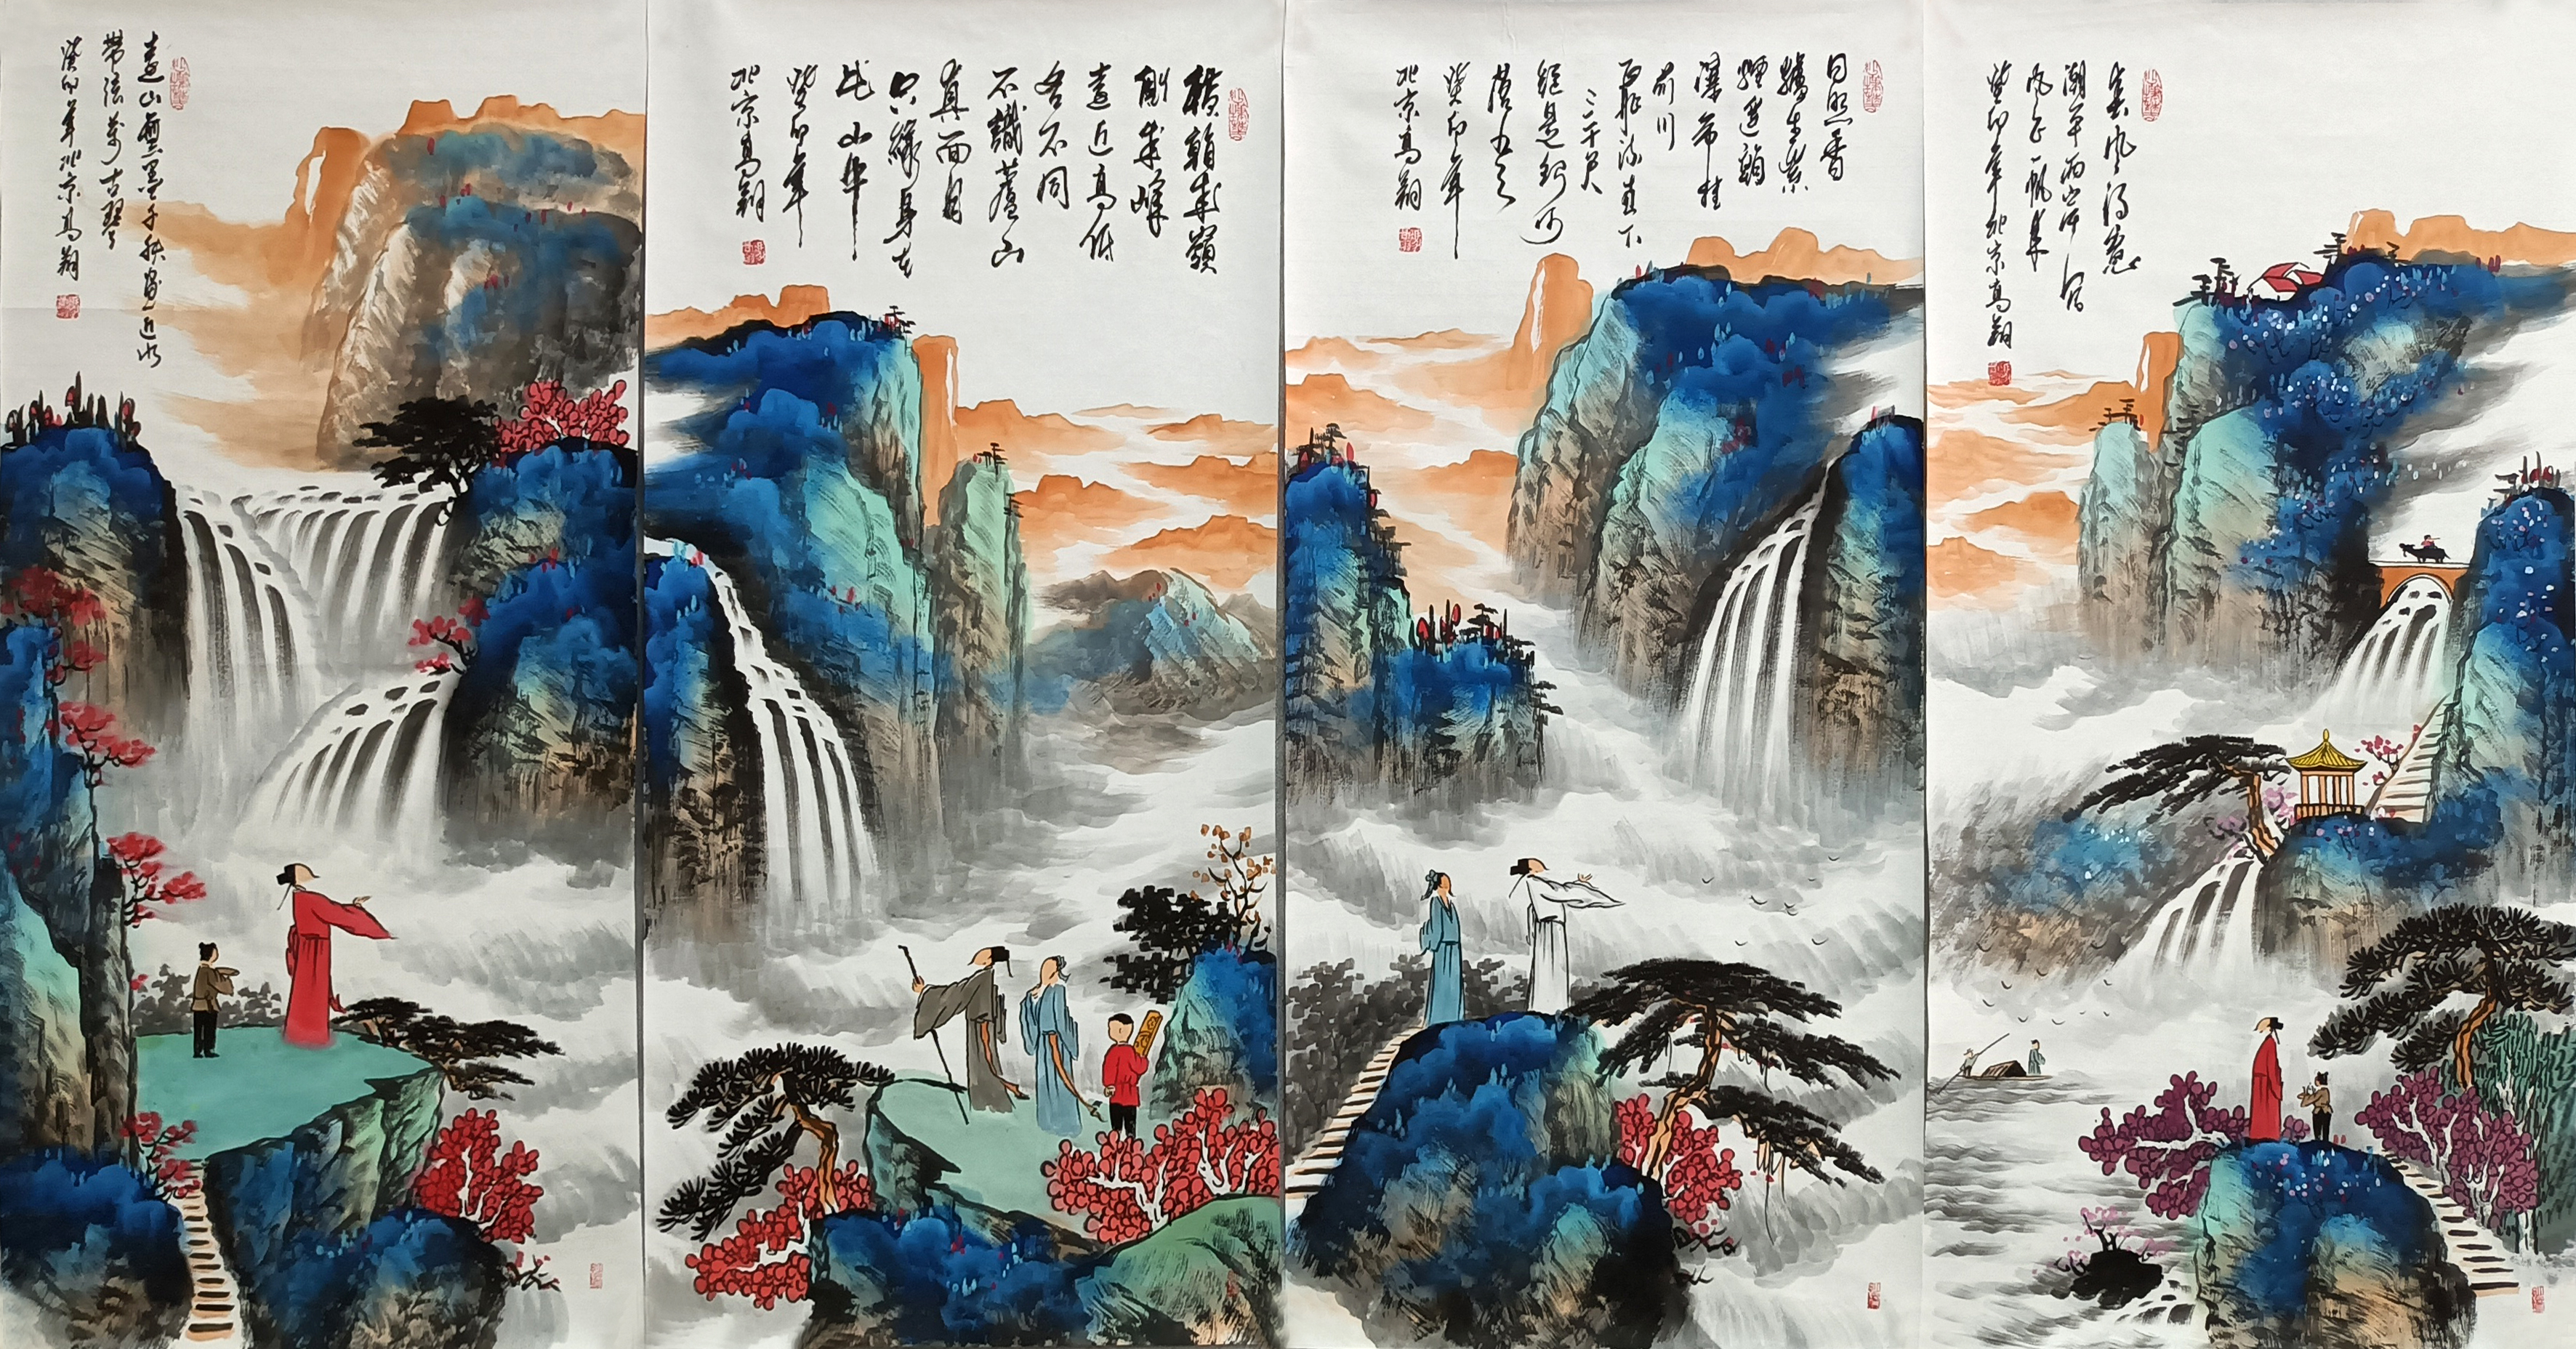 春風得意
潮平两岸闊
風正一帆悬
癸卯年北京高翔
日照香
爐生紫
煙遥看
瀑布挂
前川
飛流直下
三千尺
疑是銀河
落九天
癸卯年
北京高翔
橫看成嶺
側成峰
遠近高低
各不同
不識廬山
真面目
只緣身在
此山中
癸卯年
北京高翔
遠山無墨千秋畫近水
無弦萬古琴
癸卯年北京高翔